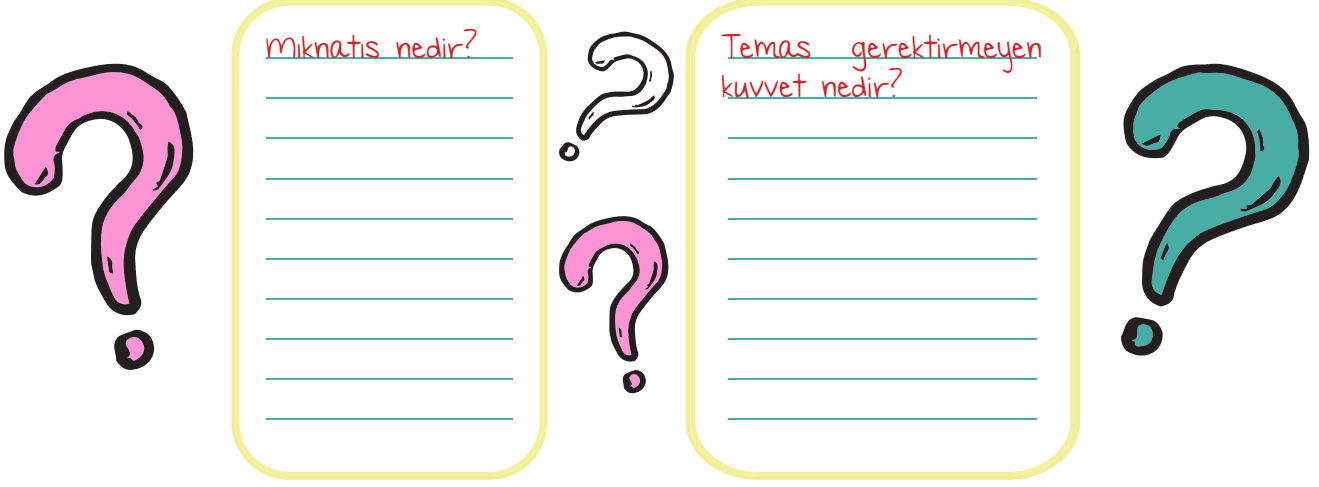 Mıknatıs nedir?
Temas gerektirmeyen
kuvvet nedir?